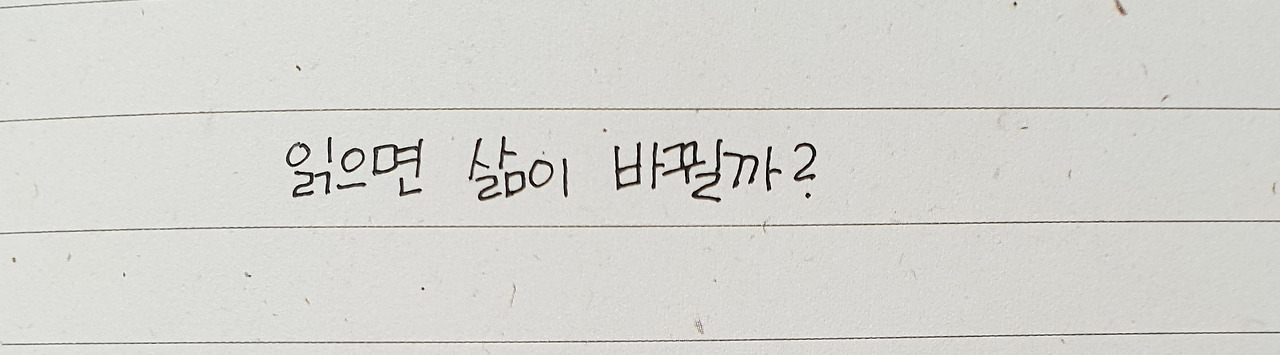 읽으면 삶이 바뀔까?